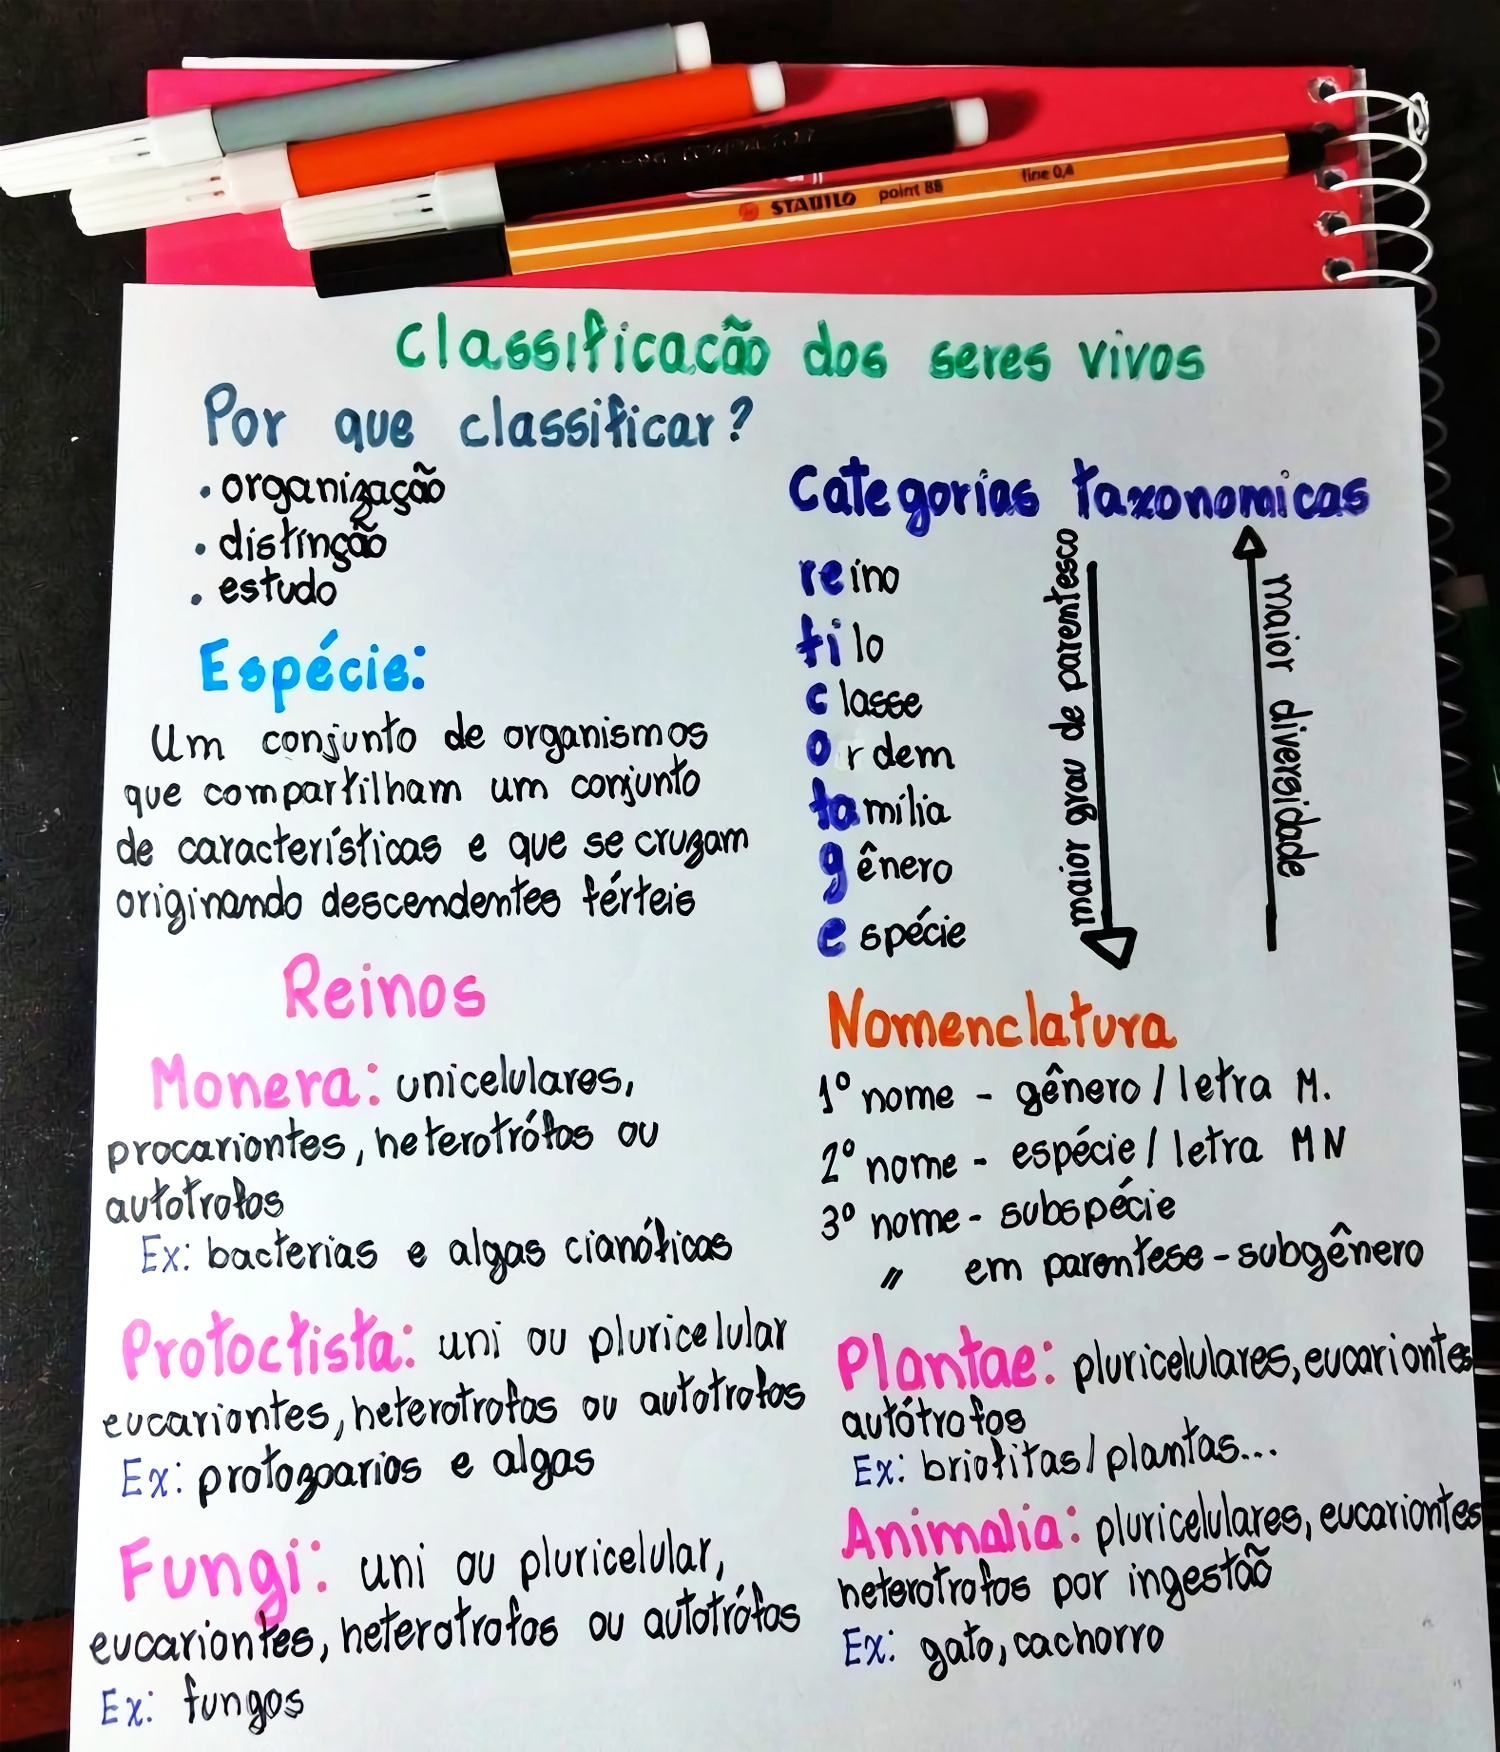 STABILO point 88 fine 0,4
Classificacão dos seres vivos
Por que classificar?
. organização
. distinção
. estudo
Espécie:
Um conjunto de organismos
que compartilham um conjunto
de características e que se cruzam
originando descendentes férteis
Categorias taxonomicas
reino
filo
classe
ordem
família
gênero
espécie
maior grau de parentesco
maior diversidade
Reinos
Monera: unicelulares,
procariontes, heterotrófos ou
autotrofos
Ex: bacterias e algas cianóficas
Protoctista: uni ou pluricelular
eucariontes, heterotrofos ou autotrofos
Ex: protozoarios e algas
Fungi: uni ou pluricelular,
eucariontes, heterotrofos ou autotrófos
Ex: fungos
Nomenclatura
1º nome - gênero / letra M.
2º nome - espécie / letra MN
3º nome - subspécie
" em parentese - subgênero
Plantae: pluricelulares, eucariontes
autótrofos
Ex: briofitas / plantas...
Animalia: pluricelulares, eucariontes
heterotrofos por ingestão
Ex: gato, cachorro